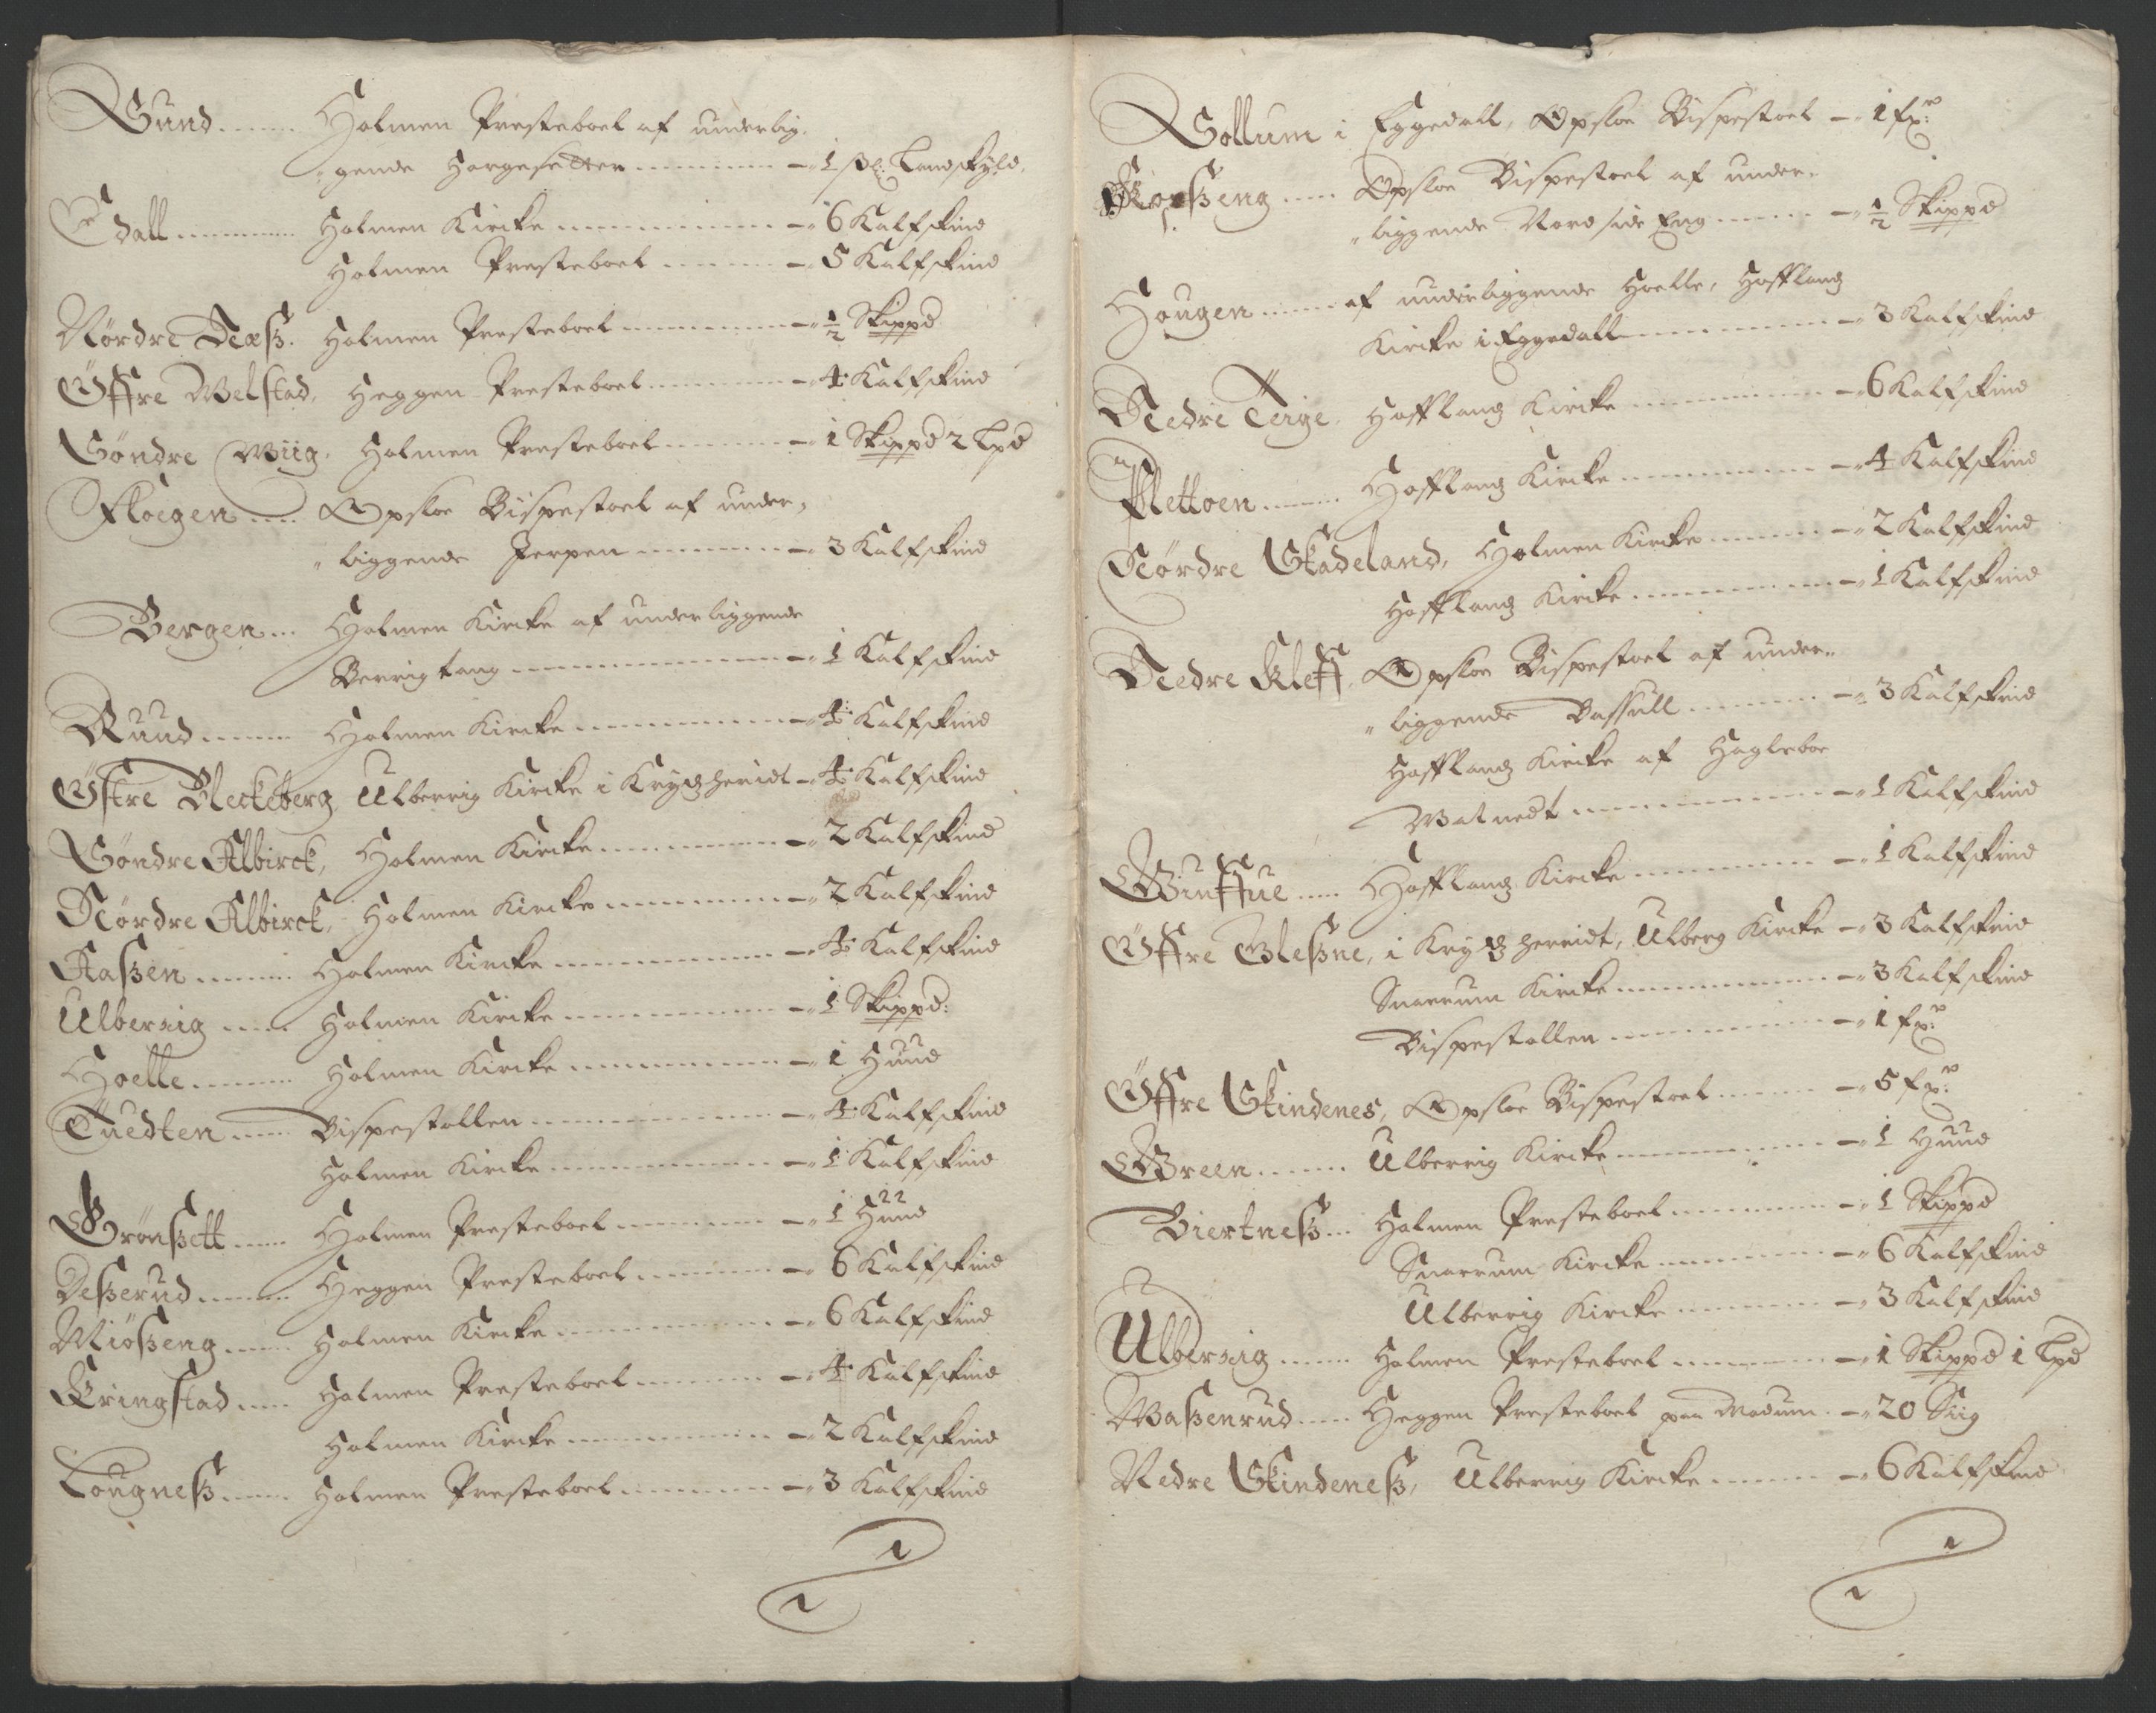 Sund ........ Holmen Presteboel af underlig-
gende Horgesetter ............ – 1 ß d: Landskyld,
Edall ............ Holmen Kircke ............ – 6 Kalfskind
Holmen Presteboel ............ – 5 Kalfskind
Nørdre Dæß. Holmen Presteboel ............ – ½ Skippd
Øffre Melstad, Heggen Presteboel ............ – 4 Kalfskind
Søndre Wiig, Holmen Presteboel ............ – 1 Skippd 2 Lpd
Floegen .... Opsloe Bispestoel af under-
liggende Jerpen ............ – 3 Kalfskind
Bergen ... Holmen Kircke af underliggende
Berrig tang ............ – 1 Kalfskind
Ruud ........ Holmen Kircke ............ – 4 Kalfskind
Østre Bleckeberg, Ulberrig Kircke i Krydzheridt – 4 Kalfskind
Søndre Albirck, Holmen Kircke ............ – 2 Kalfskind
Nørdre Albirck, Holmen Kircke ............ – 2 Kalfskind
Aaßen ........ Holmen Kircke ............ – 4 Kalfskind
Ulberrig ..... Holmen Kircke ............ – 1 Skippd:
Hoelle ........ Holmen Kircke ............ – 1 Huud
Tuedten ..... Bispestollen ............ – 4 Kalfskind
Holmen Kircke ............ – 1 Kalfskind
Grønßett ..... Holmen Presteboel ............ – 1 Huud
Deßerud ........ Heggen Presteboel ............ – 6 Kalfskind
Miößeng ...... Holmen Kircke ............ – 6 Kalfskind
Kringstad ..... Holmen Presteboel ............ – 4 Kalfskind
Holmen Kircke ............ – 2 Kalfskind
Lougneß ...... Holmen Presteboel ............ – 3 Kalfskind
Sollum i Eggedall, Opsloe Bispestoel – 1 fx:
Kopßeng ..... Opsloe Bispestoel af under-
liggende Nord side Eng ....... – ½ Skippd
Hougen ...... af underliggende Hoelle, Hofflandz
Kircke i Eggedall ............ – 3 Kalfskind
Nedre Teige, Hofflandz Kircke ............ – 6 Kalfskind
Flettoen ....... Hofflandz Kircke ............ – 4 Kalfskind
Nørdre Skadeland, Holmen Kircke ....... – 2 Kalfskind
Hofflandz Kircke ............ – 1 Kalfskind
Nedre Kleff, Opsloe Bispestoel af under-
liggende Bassull ............ – 3 Kalfskind
Hofflandz Kircke af Hagleboe
Watnedt ............ – 1 Kalfskind
Winffue ..... Hofflandz Kircke ............ – 1 Kalfskind
Øffre Gleßne, i Krydzherridt, Ulberg Kircke – 3 Kalfskind
Snarrum Kircke ............ – 3 Kalfskind
Bispestollen ............ – 1 fx:
Øffre Skindenes, Opsloe Bispestoel ....... – 5 fx:
Green ....... Ulberrig Kircke ............ – 1 Huud
Biertneß ... Holmen Presteboel ............ – 1 Skippd
Snarrum Kircke ............ – 6 Kalfskind
Ulberrig Kircke ............ – 3 Kalfskind
Ulberrig ...... Holmen Presteboel ............ – 1 Skippd 1 Lpd
Waßenrud ..... Heggen Presteboel paa Modum . – 20 Siig
Nedre Skindeneß, Ulberrig Kircke ....... – 6 Kalfskind